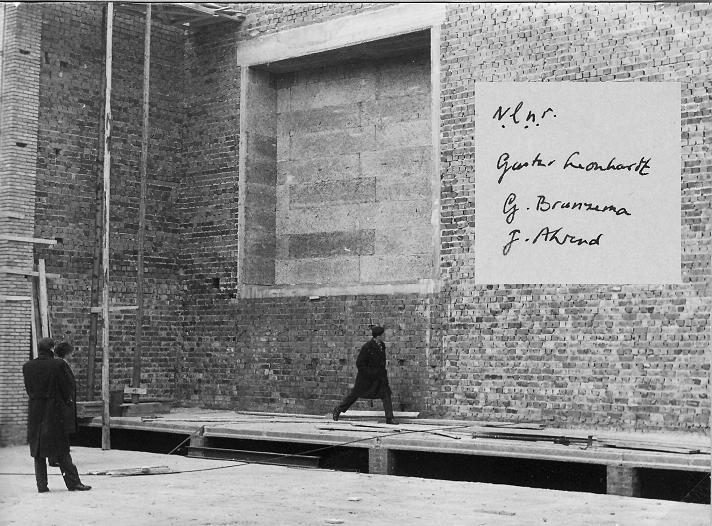 V.l.n.r.
Gustav Leonhardt
G. Brunzema
J. Ahrend